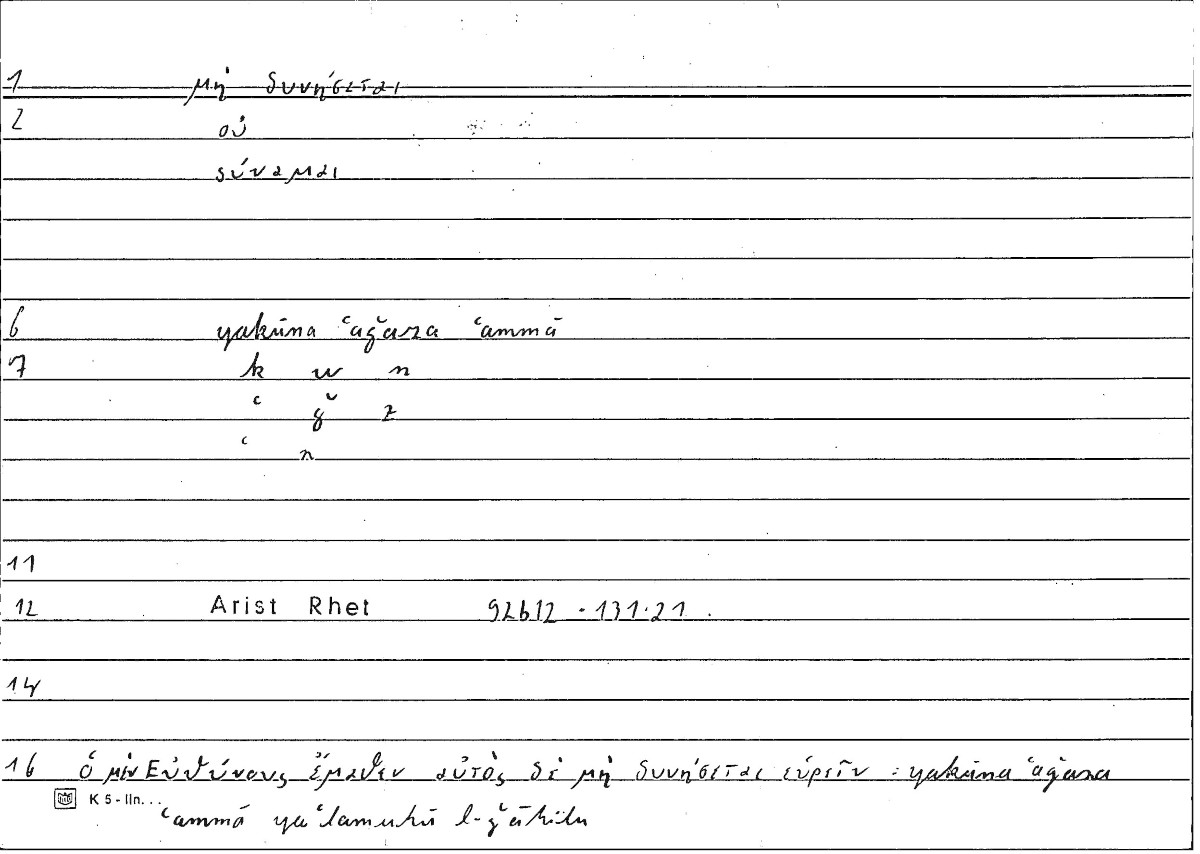 1 μὴ δυνήσεται
2 οὐ
δύναμαι
6 yakūna ʿaǧaza ʿammā
7 k w n
ʿ ǧ z
ʿ n
11
12 Arist Rhet 92b12 · 131.21
14
16 ὁ μὲν Εὐθύνους ἔμαθεν αὐτὸς δὲ μὴ δυνήσεται εὑρεῖν : yakūna ʿaǧaza
K 5 - lln. . .
ʿammā yaʿlamuhū l-ǧāhilu